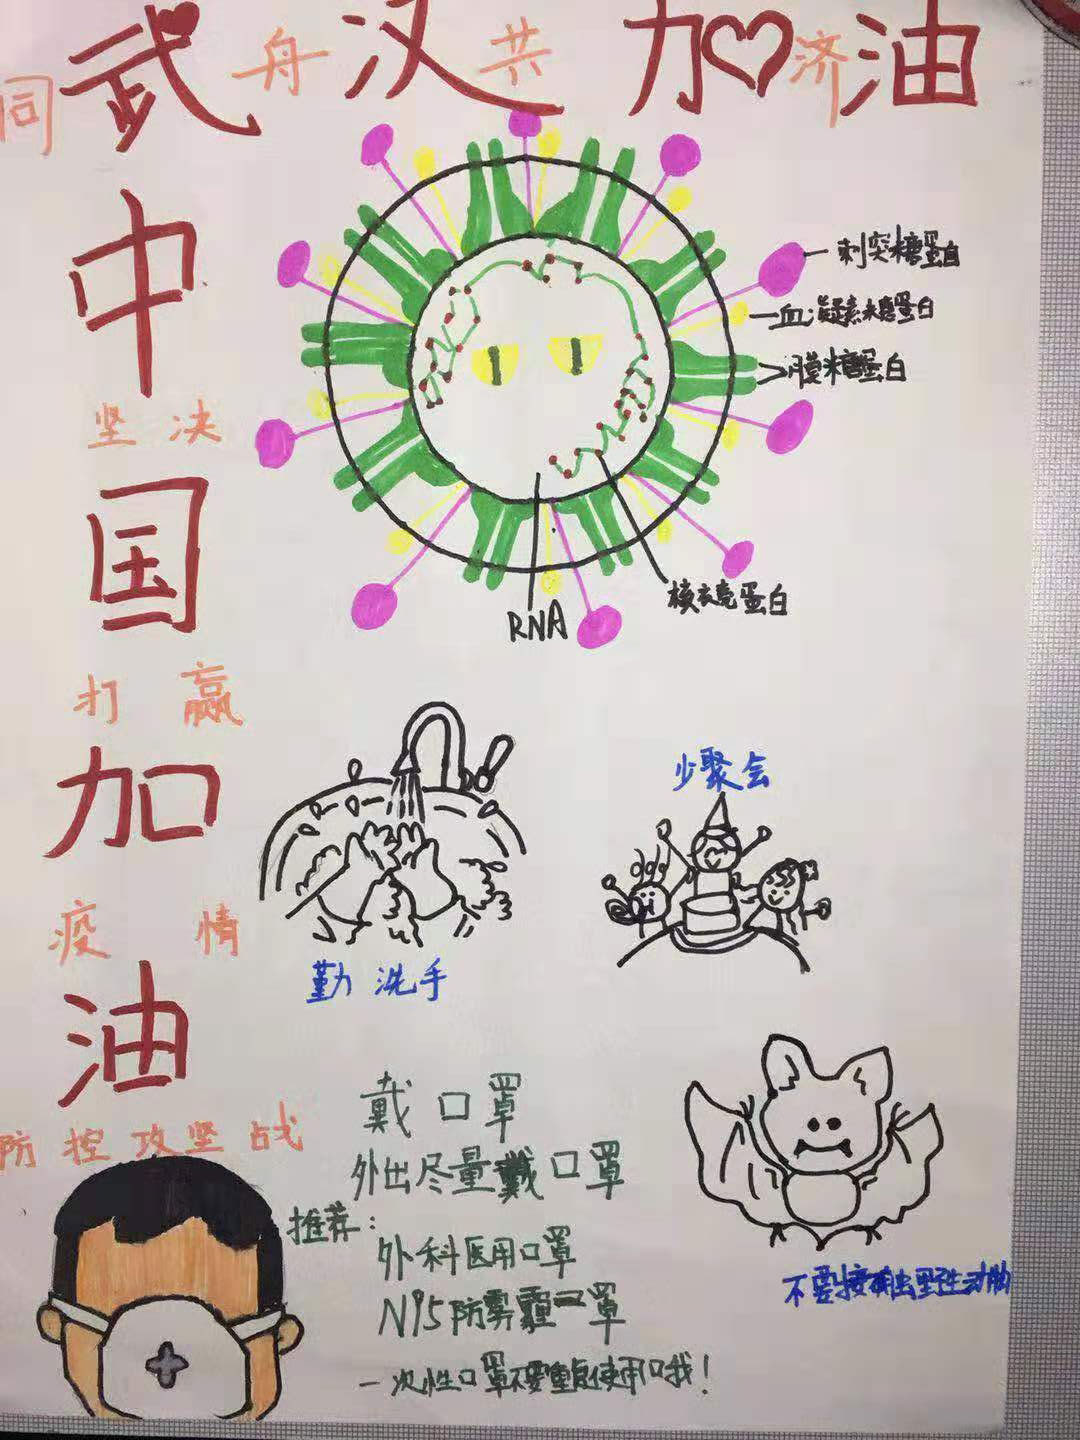 武汉加油
同舟共济
中国加油
坚决
打赢
疫情
防控攻坚战
刺突糖蛋白
血凝素糖蛋白
膜糖蛋白
核衣壳蛋白
RNA
少聚会
勤洗手
戴口罩
外出尽量戴口罩
推荐：
外科医用口罩
N95防雾霾口罩
一次性口罩不要重复使用哦！
不要接触野生动物